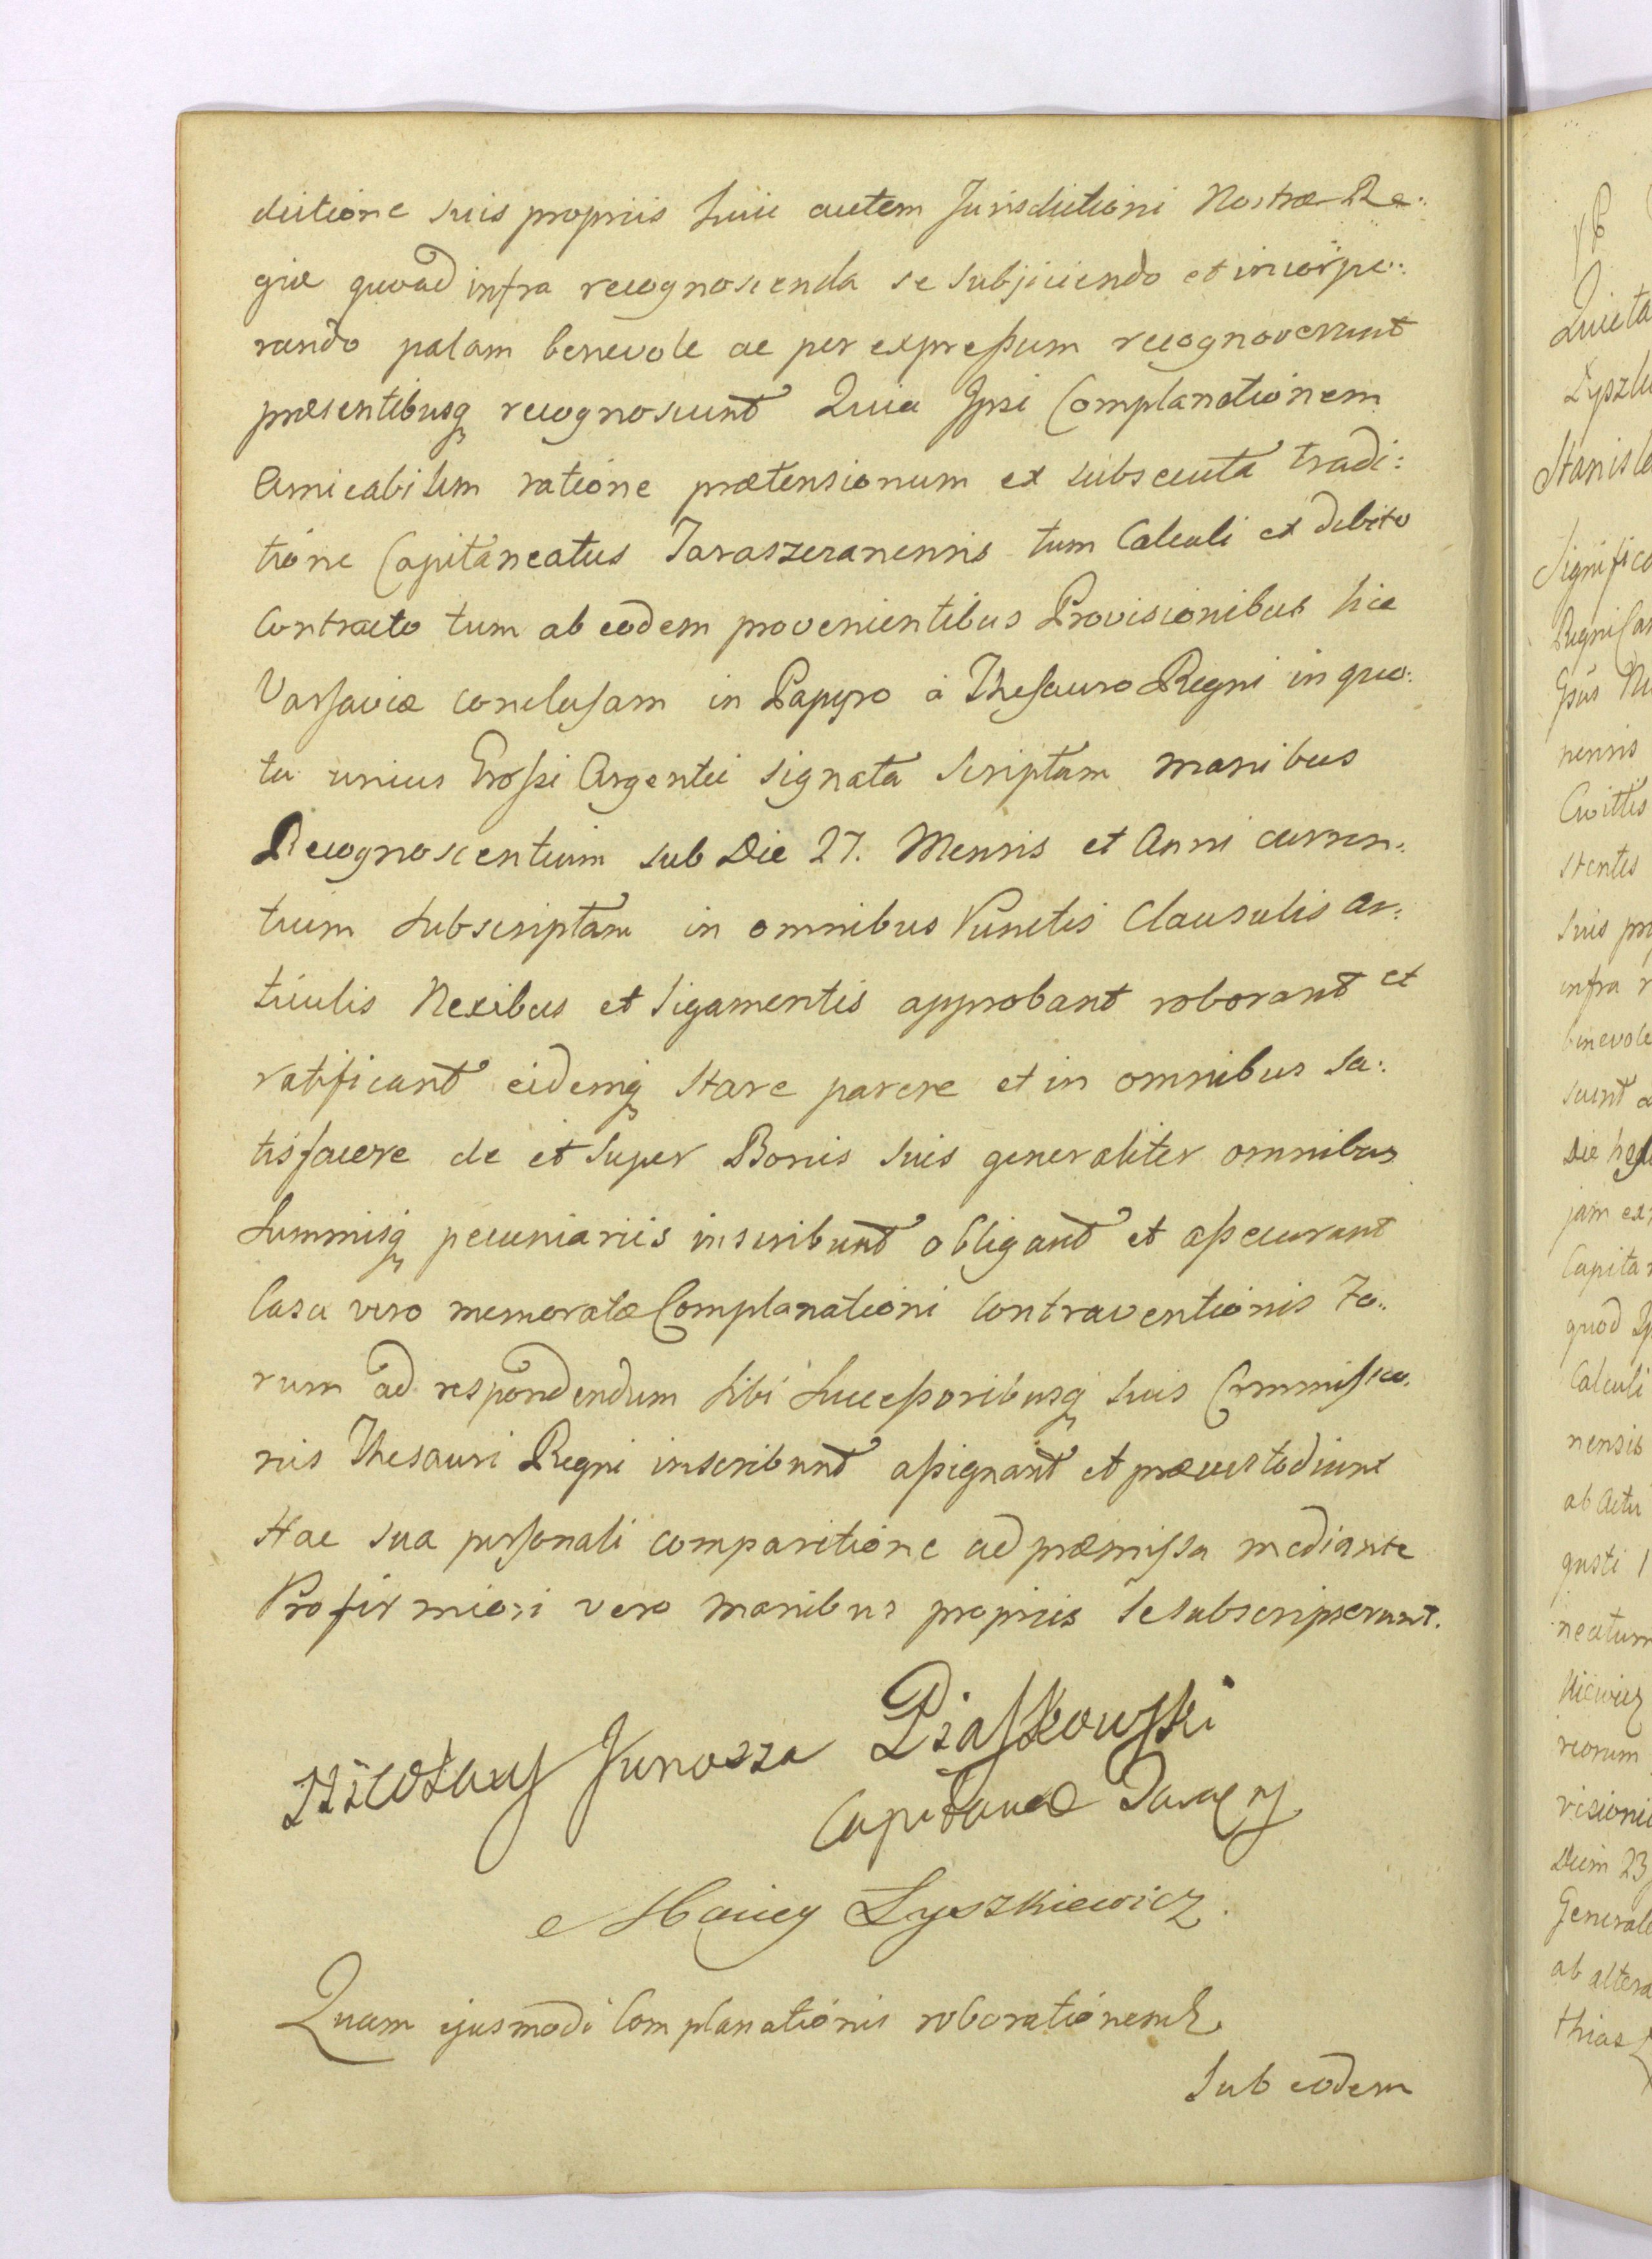 dictione suis propriis huic autem Jurisdictioni Nostræ Re:
giæ quoad infra recognoscenda se subjiciendo et incorpo:
rando palam benevole ac per expressum recognoverunt
præsentibusq recognoscunt Quia Ipsi Complanationem
Amicabilem ratione prætensionum ex subsecuta tradi:
tione Capitaneatus Taraszczanensis tum Calculi et debito
Contracto tum ab eodem provenientibus Provisionibus hic
Varsaviæ conclusam in Papyro à Thesauro Regni in quo:
ta unius Grossi Argentei signata Scriptam manibus
Recognoscentium sub Die 27. Mensis et Anni curren:
tium subscriptam in omnibus Punctis Clausulis Ar:
ticulis Nexibus et Ligamentis approbant roborant et
ratificant eidemq stare parere et in omnibus sa:
tisfacere de et super Bonis suis generaliter omnibus
Summisq pecuniariis inscribunt obligant et assecurant
Casu vero memoratæ Complanationi Contraventionis Fo:
rum ad respondendum sibi Successoribusq suis Commissa:
riis Thesauri Regni inscribunt assignant et præcustodiunt
Hac sua personali comparitione ad præmissa mediante
Pro firmiori vero manibus propriis se subscripserunt.
Mikołay Junosza Piaskowski
Capitaneæ
Maciey Łyszkiewicz.
Quam ejusmodi Complanationis roborationem
Sub eodem
Quieta
Łyszki
Stanisla
Significa
Regni Cas
Ipsús
nensis
stentes
suis pro
infra r
benevole
jam ex
Capitan
quod
Calculi
nensis
ab Actu
gusti 1
neatum
kiewicz
visioni
Diem 23
General
ab altera
thias